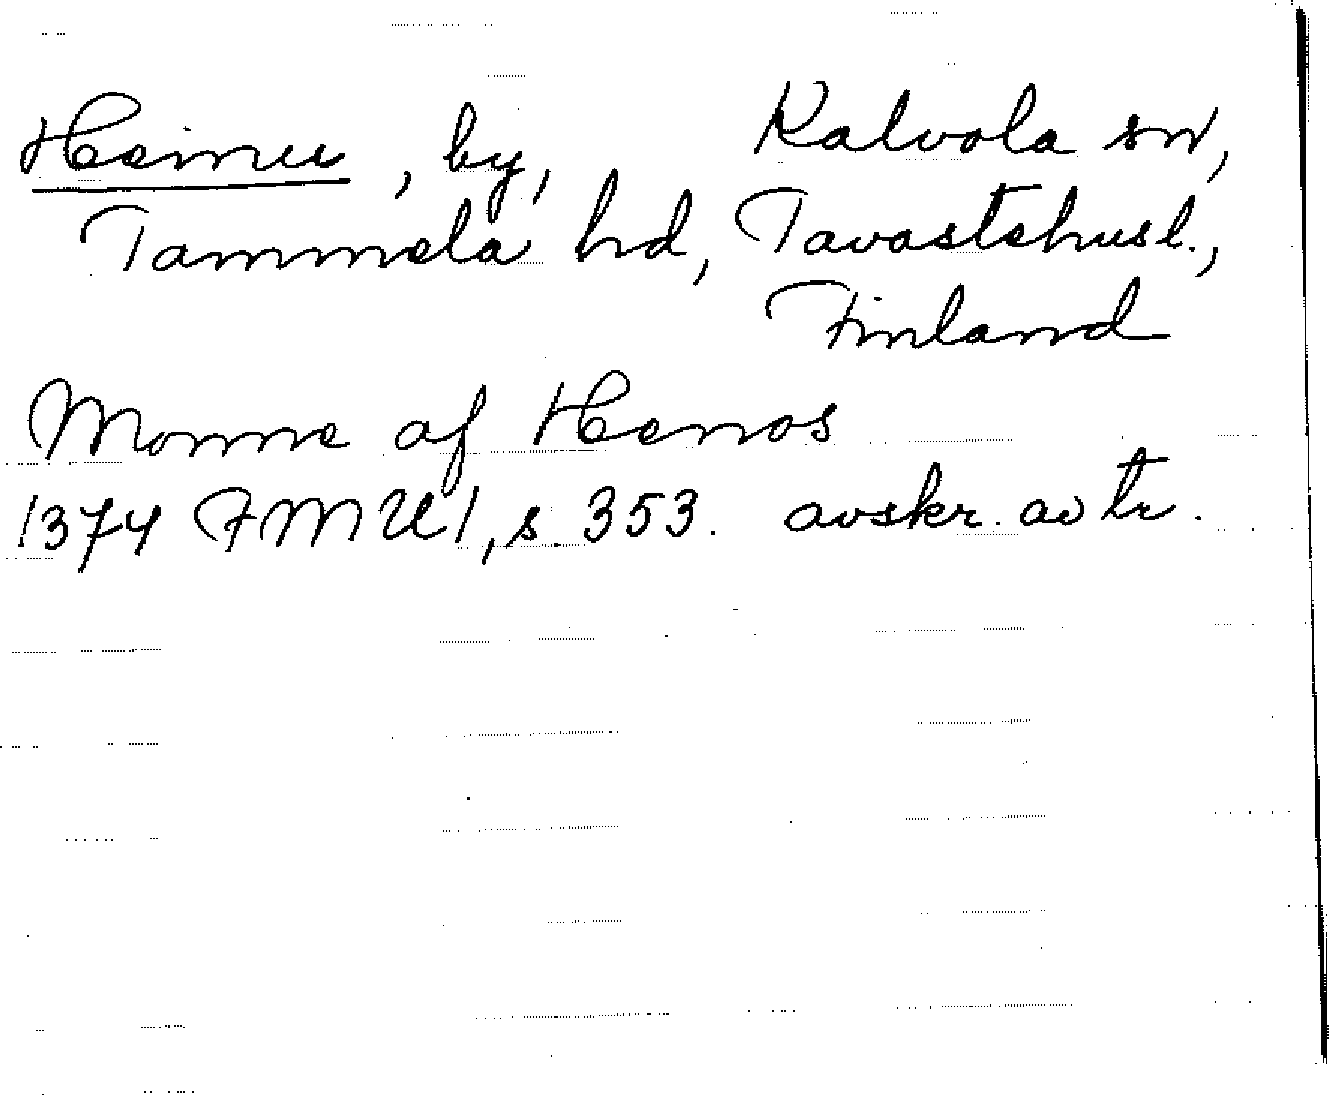 Heinu, by, Kalvola sn,
Tammela hd, Tavastehusl.,
Finland
Monne af Henos
1374 FMU I, s 353. avskr. av tr.